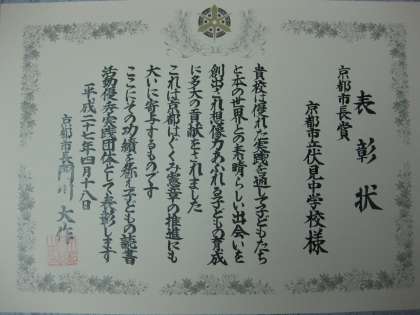 表彰状
京都市長賞
京都市立伏見中学校様
貴校は優れた実践を通して子どもたち
と本の世界との素晴らしい出会いを
創出され想像力あふれる子どもの育成
に多大の貢献をされました
これは京都はぐくみ憲章の推進にも
大いに寄与するものです
ここにその功績を称え子どもの読書
活動優秀実践団体として表彰します
平成二十七年四月十八日
京都市長 門川 大作